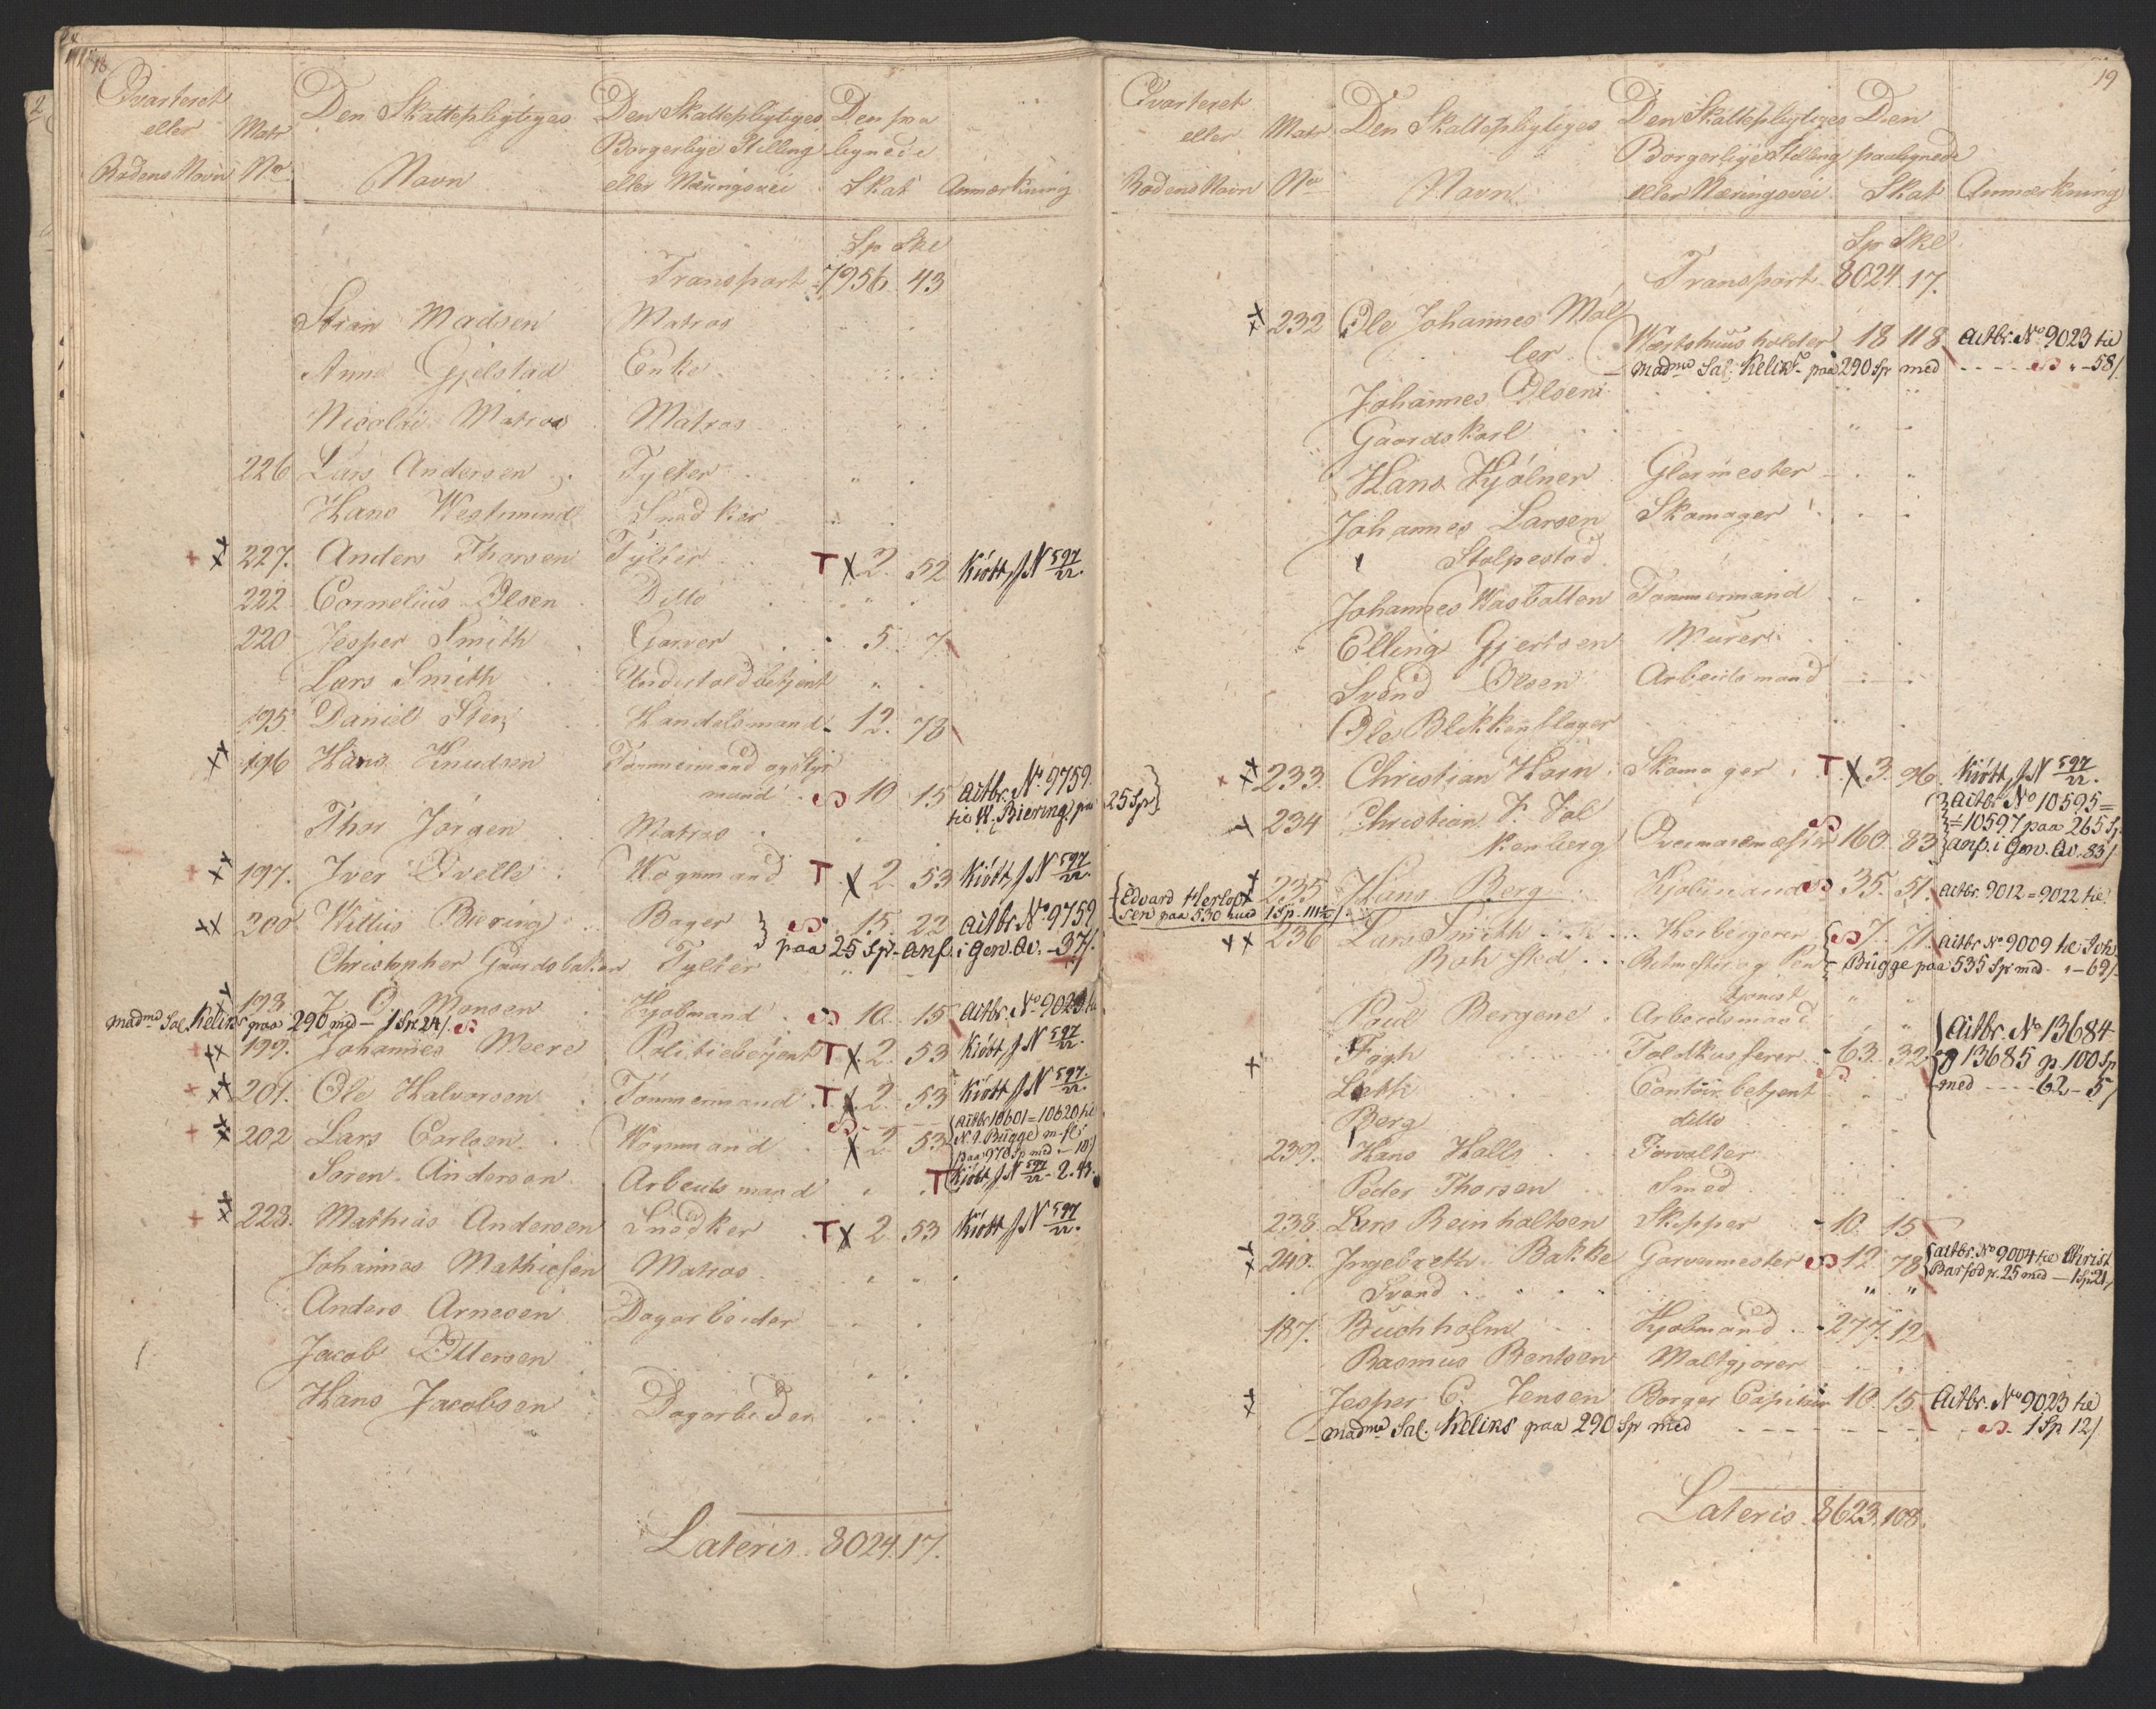 18
Qvarteret eller Rodens Navn | Matr No | Den Skattepligtiges Navn | Den Skattepligtiges Borgerlige Stilling eller Næringsvei | Den paa lignede Skat | Anmærkning
Sp Skl
Transport 7956 43
Stian Madsen Matros
Anne Gjelstad Enke
Nicolai Matros Matros
226 Lars Andersen Tylter
Hans Westmund Snedker
227. Anders Thorsen Tylter T X 2. 52 Kiött, J N 597/22.
222 Cornelius Olsen Ditto
220 Jesper Smith Garver 5. 7
Lars Smith Undertoldbetjent
195. Daniel Handelsmand 12. 78
196 Hans Knudsen Tømmermand og Styr
mand 10 15 Actbr. No. 9759
til W. Biering paa 25 Sp
Thor Jørgen Matros
197. Iver Qvelle Vognmand T X 2. 53 Kiött, J N 597/22.
200 Willius Biering Bager 15. 22 actbr. No. 9759
paa 25 Sp. anf. i Gen. Qv. - 37/.
Christopher Tylter
198 J. O. Monsen Kjøbmand 10. 15 actbr. No. 9023 til
madme Sal. Keliks paa 290 med - 1 Sp. 24/.
199. Johannes Meere Politiebetjent T X 2. 53 Kiött J N 597/22.
201. Ole Halvorsen Tømmermand T X 2. 53 Kiött J N 597/22.
202 Lars Carlsen Vognmand X 2. 53 actbr. 10601=10620 til
N. J. Bügge m. fl.
paa 970 Sp med - 10/
Søren Andersen Arbeidsmand T Kiött J N 597/22 - 2. 43.
223. Mathias Andersen Snedker T X 2 53 Kiött J N 597/22.
Johannes Mathiesen Matros
Anders Arnesen Dagarbeider
Jacob Ottersen
Hans Jacobsen Dagarbeider
Lateris 8024. 17.
19
Qvarteret eller Rodens Navn | Matr No | Den Skattepligtiges Navn | Den Skattepligtiges Borgerlige Stilling eller Næringsvei | Den paalignede Skat | Anmærkning
Sp Skl
Transport 8024 17.
232 Ole Johannes Møl
ler Værtshuusholder 18 118 actbr. No 9023 til
madme Sal. Keliks paa 290 Sp med - 58/.
Johannes Olsen
Gaardskarl
Hans Kjølner Glarmester
Johannes Larsen Skomager
Stolpestad
Johannes Tømmermand
Elling Gjertsen Murer
Svend Olsen Arbeidsmand
Ole Blikkenslager
233. Christian Horn Skomager T X 3. 96 Kiött, J N 597/22.
234 Christian F. Fal
kenberg 160. 83 actbr No 10595=
=10597 paa 265 Sp
anf. i Gen. Qv. 83/
235 Hans Berg Kjøbmand 35. 51. actbr. 9012=9022 til
Edvard Herlof
sen paa 530 med 1 Sp.
236 Lars Smith Herbergerer 7. 71. actbr No 9009 til Joh
Bügge paa 535 Sp med - 62/.
Rohsted Retmester og Pen
sionist
Poul Bergene Arbeidsmand
Fogh Toldkasserer 63. 32 actbr. No 13684
og 13685 p. 100 Sp
med 62 - 5/
Leth Contoirbetjent
Berg ditto
239. Hans Halls Forvalter
Peder Thorsen Smed
238 Lars Reinholtsen Skipper 10. 15
240. Ingebreth Bakke Garvermester 12. 78 actbr. No 9004 til Christ
Barfod p. 25 med - 1 Sp 21/
Svend
187. Buchholm Kjøbmand 277. 12
Rasmus Bentsen Maltgjører
Jesper C. Jensen Borger Capitain 10. 15 Actbr. No 9023 til
madme Sal. Keliks paa 290 Sp med 1 Sp 12/
Lateris 8623. 108.